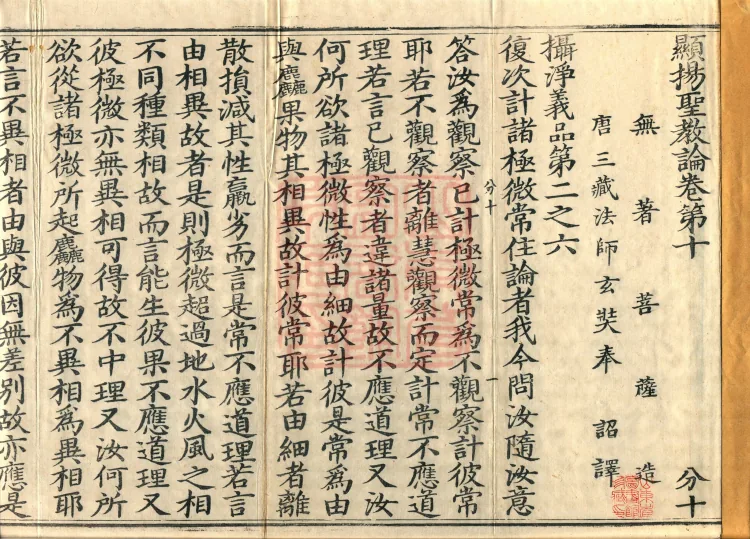 顯揚聖教論卷第十　分十
無著菩薩造
唐三藏法師玄奘奉　詔譯
攝淨義品第二之六
復次計諸極微常住論者我今問汝隨汝意
答汝為觀察已計極微常為不觀察計彼常
分十　一
耶若不觀察者離慧觀察而定計常不應道
理若言已觀察者違諸量故不應道理又汝
何所欲諸極微性為由細故計彼是常為由
與麤果物其相異故計彼常耶若由細者離
散損減其性羸劣而言是常不應道理若言
由相異故者是則極微超過地水火風之相
不同種類相故而言能生彼果不應道理又
彼極微亦無異相可得故不中理又汝何所
欲從諸極微所起麤物為不異相為異相耶
若言不異相者由與彼因無差別故亦應是